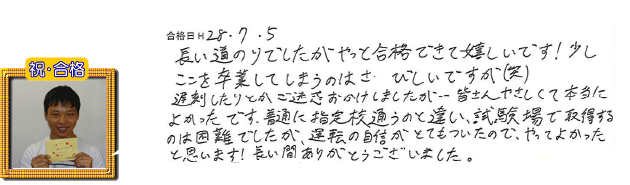 祝・合格
合格日 H 28.7.5
長い道のりでしたがやっと合格できて嬉しいです！少し
ここを卒業してしまうのはさびしいですが(笑)
遅刻したりとかご迷惑おかけしましたが--皆さんやさしくて本当に
よかったです。普通に指定校通うのと違い、試験場で取得する
のは困難でしたが、運転の自信がとてもついたので、やってよかった
と思います！長い間ありがとうございました。